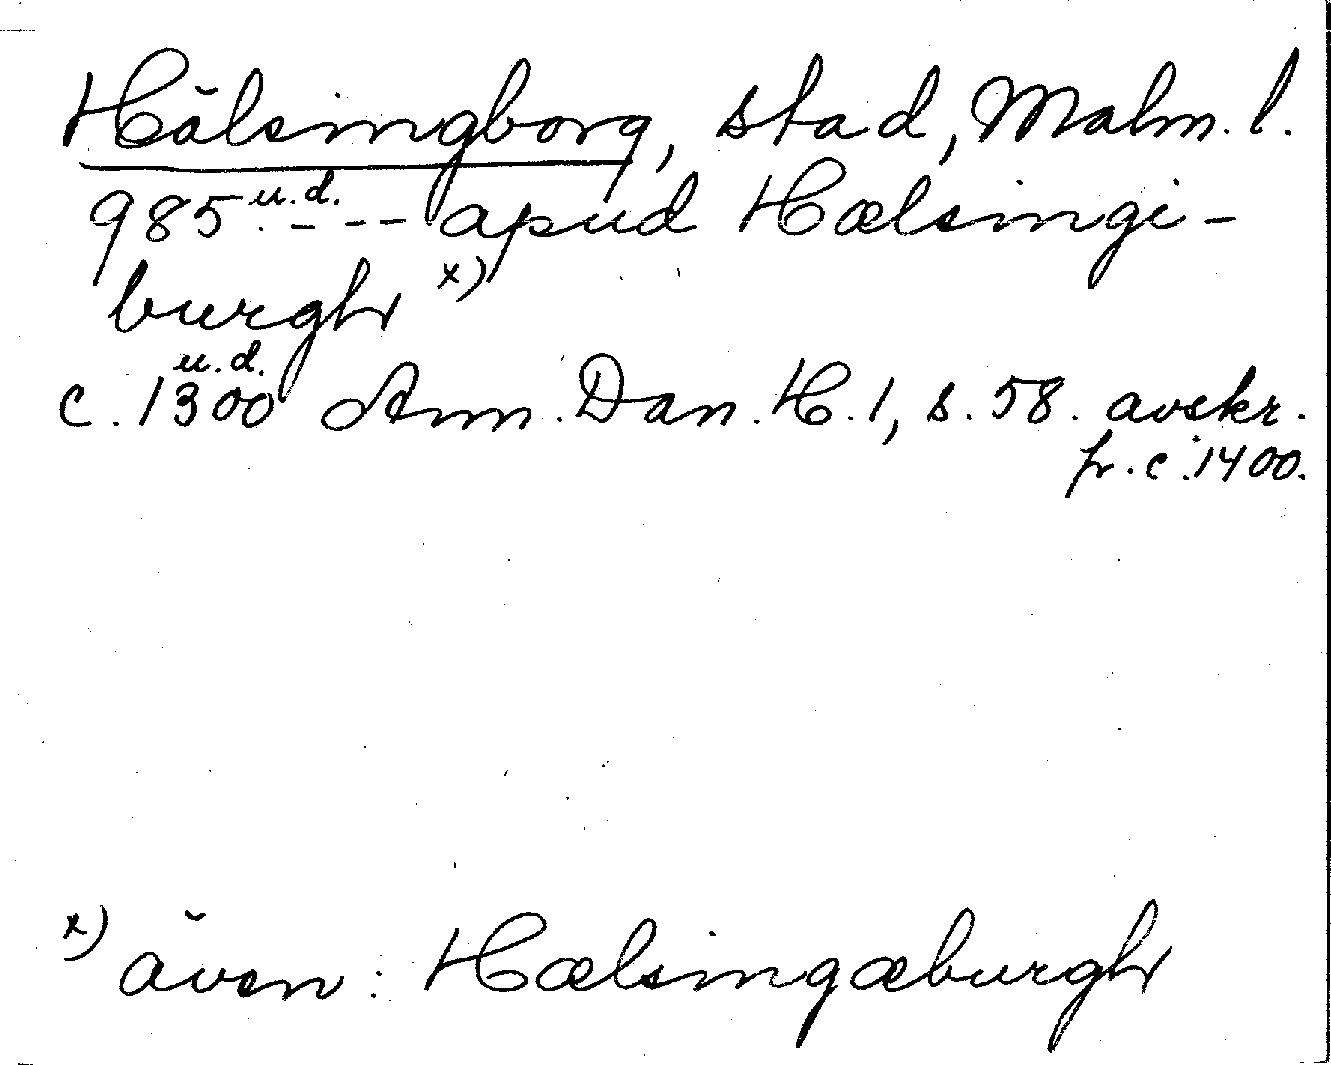 Hälsingborg, stad, Malm. l.
985 u.d. - - - apud Hælsingi-
burgh x)
c. 1300 u.d. Ann. Dan. H. 1, s. 58. avskr.
fr. c. 1400.
x) även: Hælsingæburgh